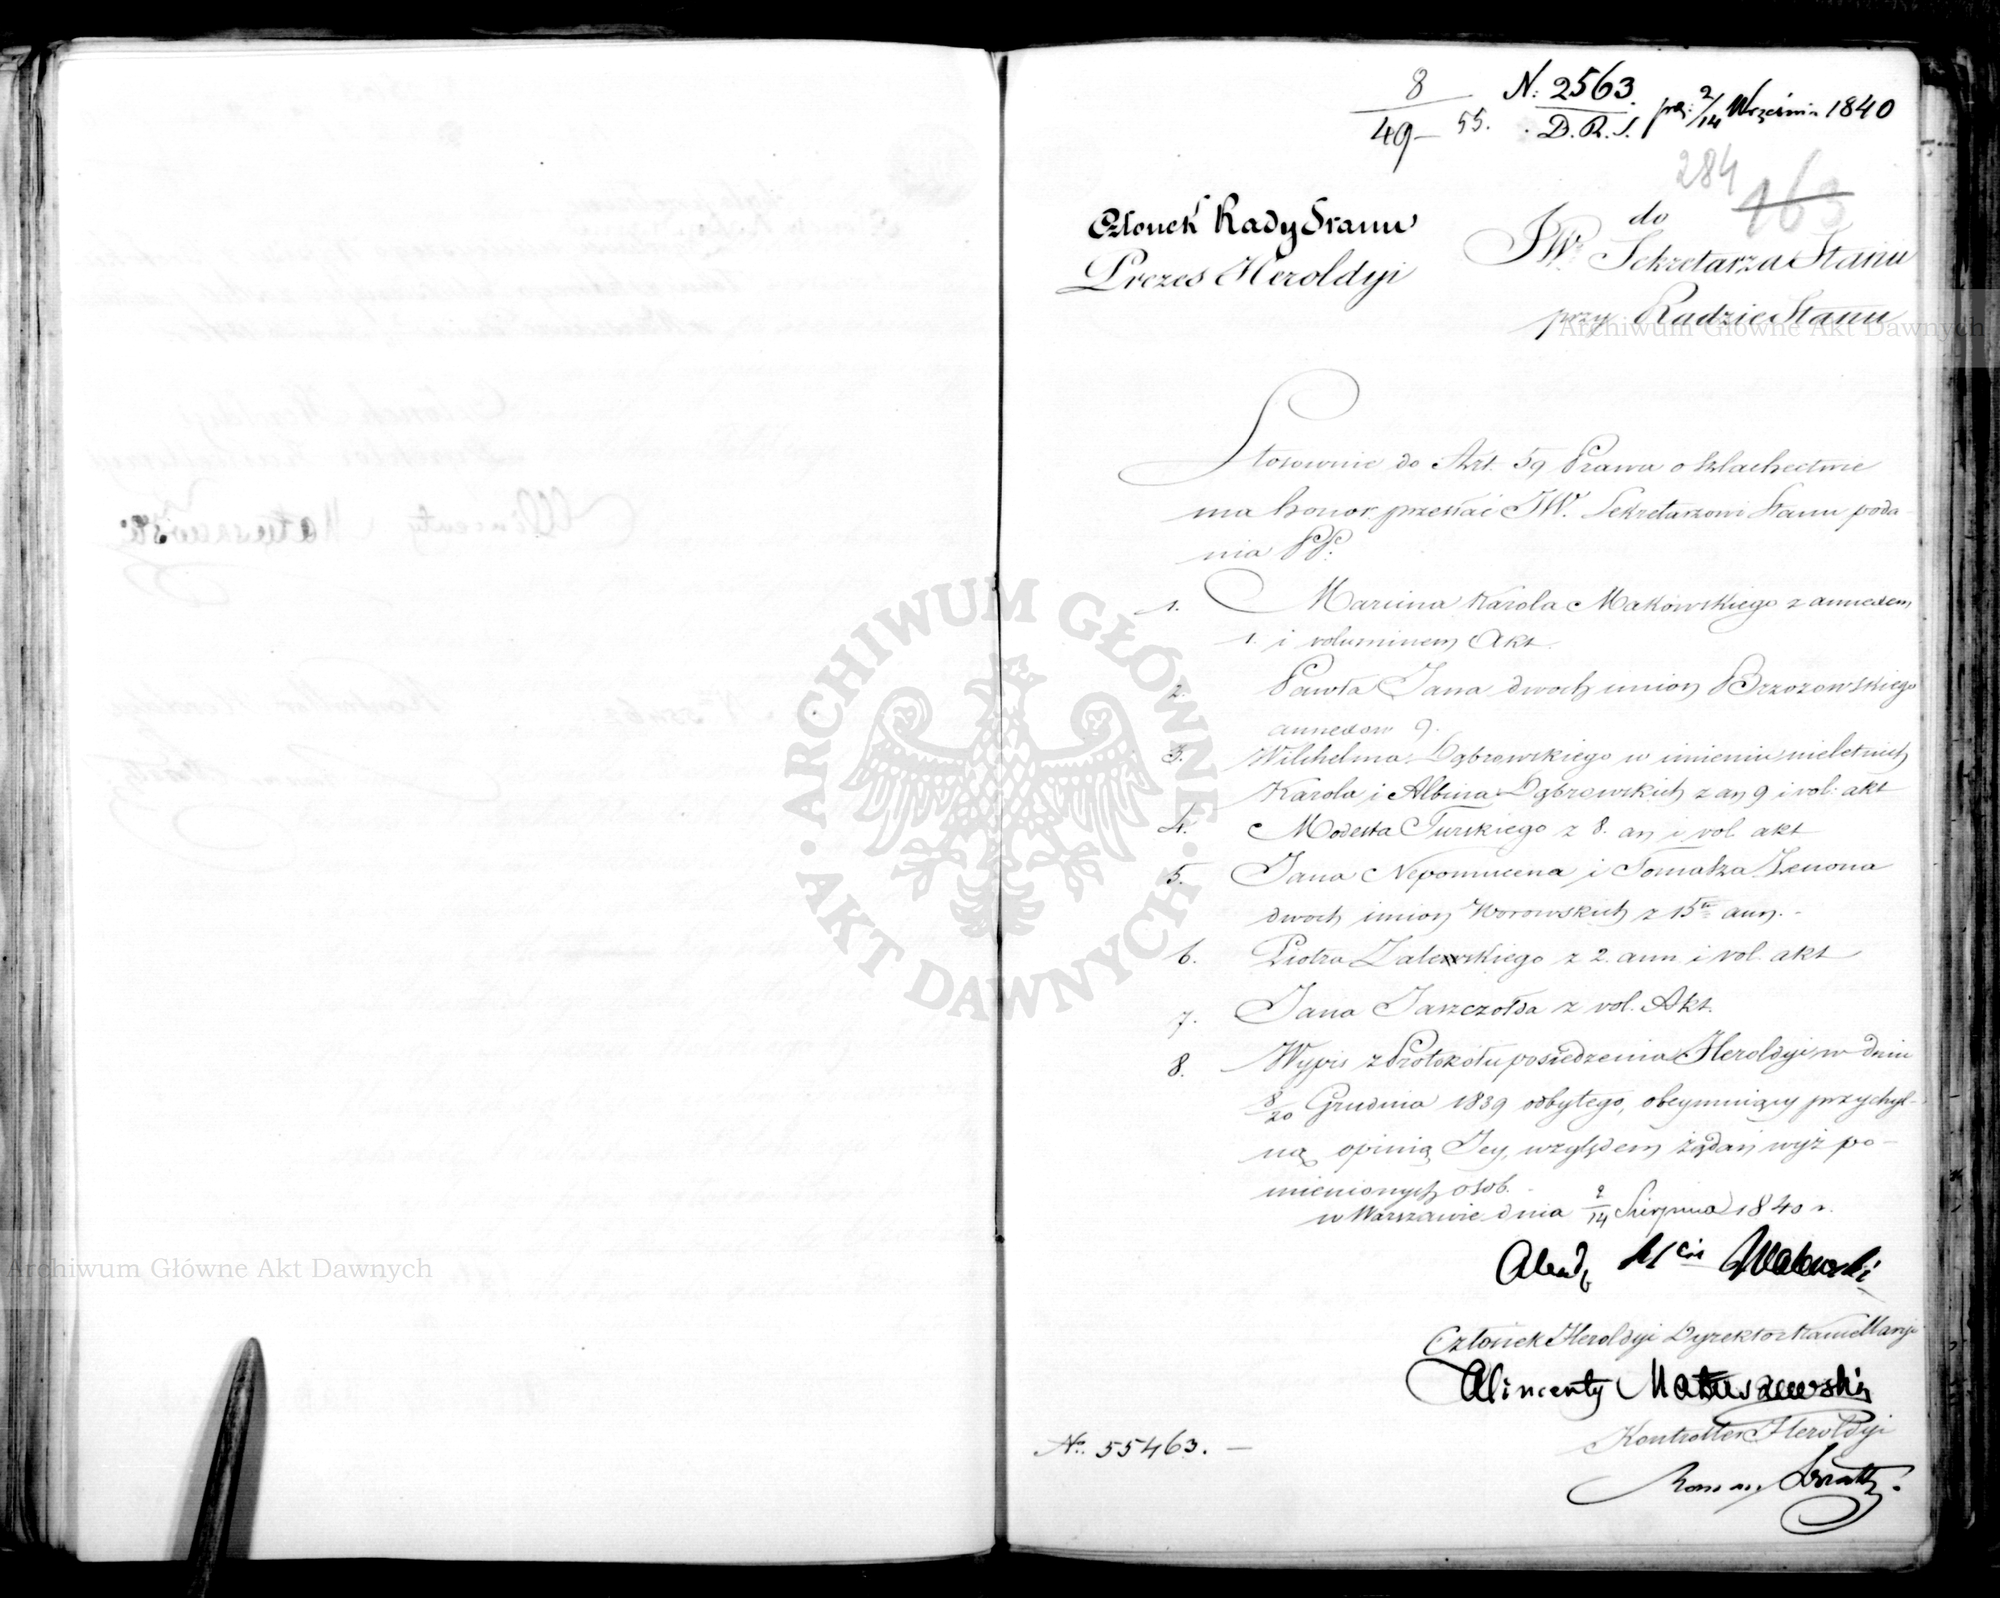 8
49 55.
N: 2563.
D.R.S.
2/14 Wrześnią 1840
284
163
Członek Rady Stanu
Prezes Heroldyi
do
JW. Sekretarza Stanu
przy Radzie Stanu
Stosownie do Art. 59 Prawa o szlachectwie
ma honor przesłać JW. Sekretarzowi Stanu poda-
nia PP.
1. Marcina Karola Makowskiego z annexem
1. i voluminem Akt.
2. Pawła Jana dwoch imion Brzozowskiego
annexow 9.
3. Wilhelma Dąbrowskiego w imieniu nieletnich
Karola i Albina Dąbrowskich z an 9 i vol: akt
4. Modesta Turskiego z 8. an i vol. akt
5. Jana Nepomucena i Tomasza Zenona
dwoch imion Worowskich z 15 ann. -
6. Piotra Zalewskiego z 2. ann i vol. akt
7. Jana Jaszczołda z vol. Akt.
8. Wypis z Protokółu posiedzenia Heroldyi w dniu
8/20 Grudnia 1839 odbytego, obeymuiący przychyl-
ną opinią Jey, względem żądań wyż po-
mienionych osób. -
w Warszawie dnia 2/14 Sierpnia 1840 r.
Walewski
Członek Heroldyi Dyrektor Kancellaryi
Wincenty Matuszewski
Kontroller Heroldyi
No. 55463. -
Archiwum Główne Akt Dawnych
Archiwum Główne Akt Dawnych
ARCHIWUM GŁÓWNE · AKT DAWNYCH ·